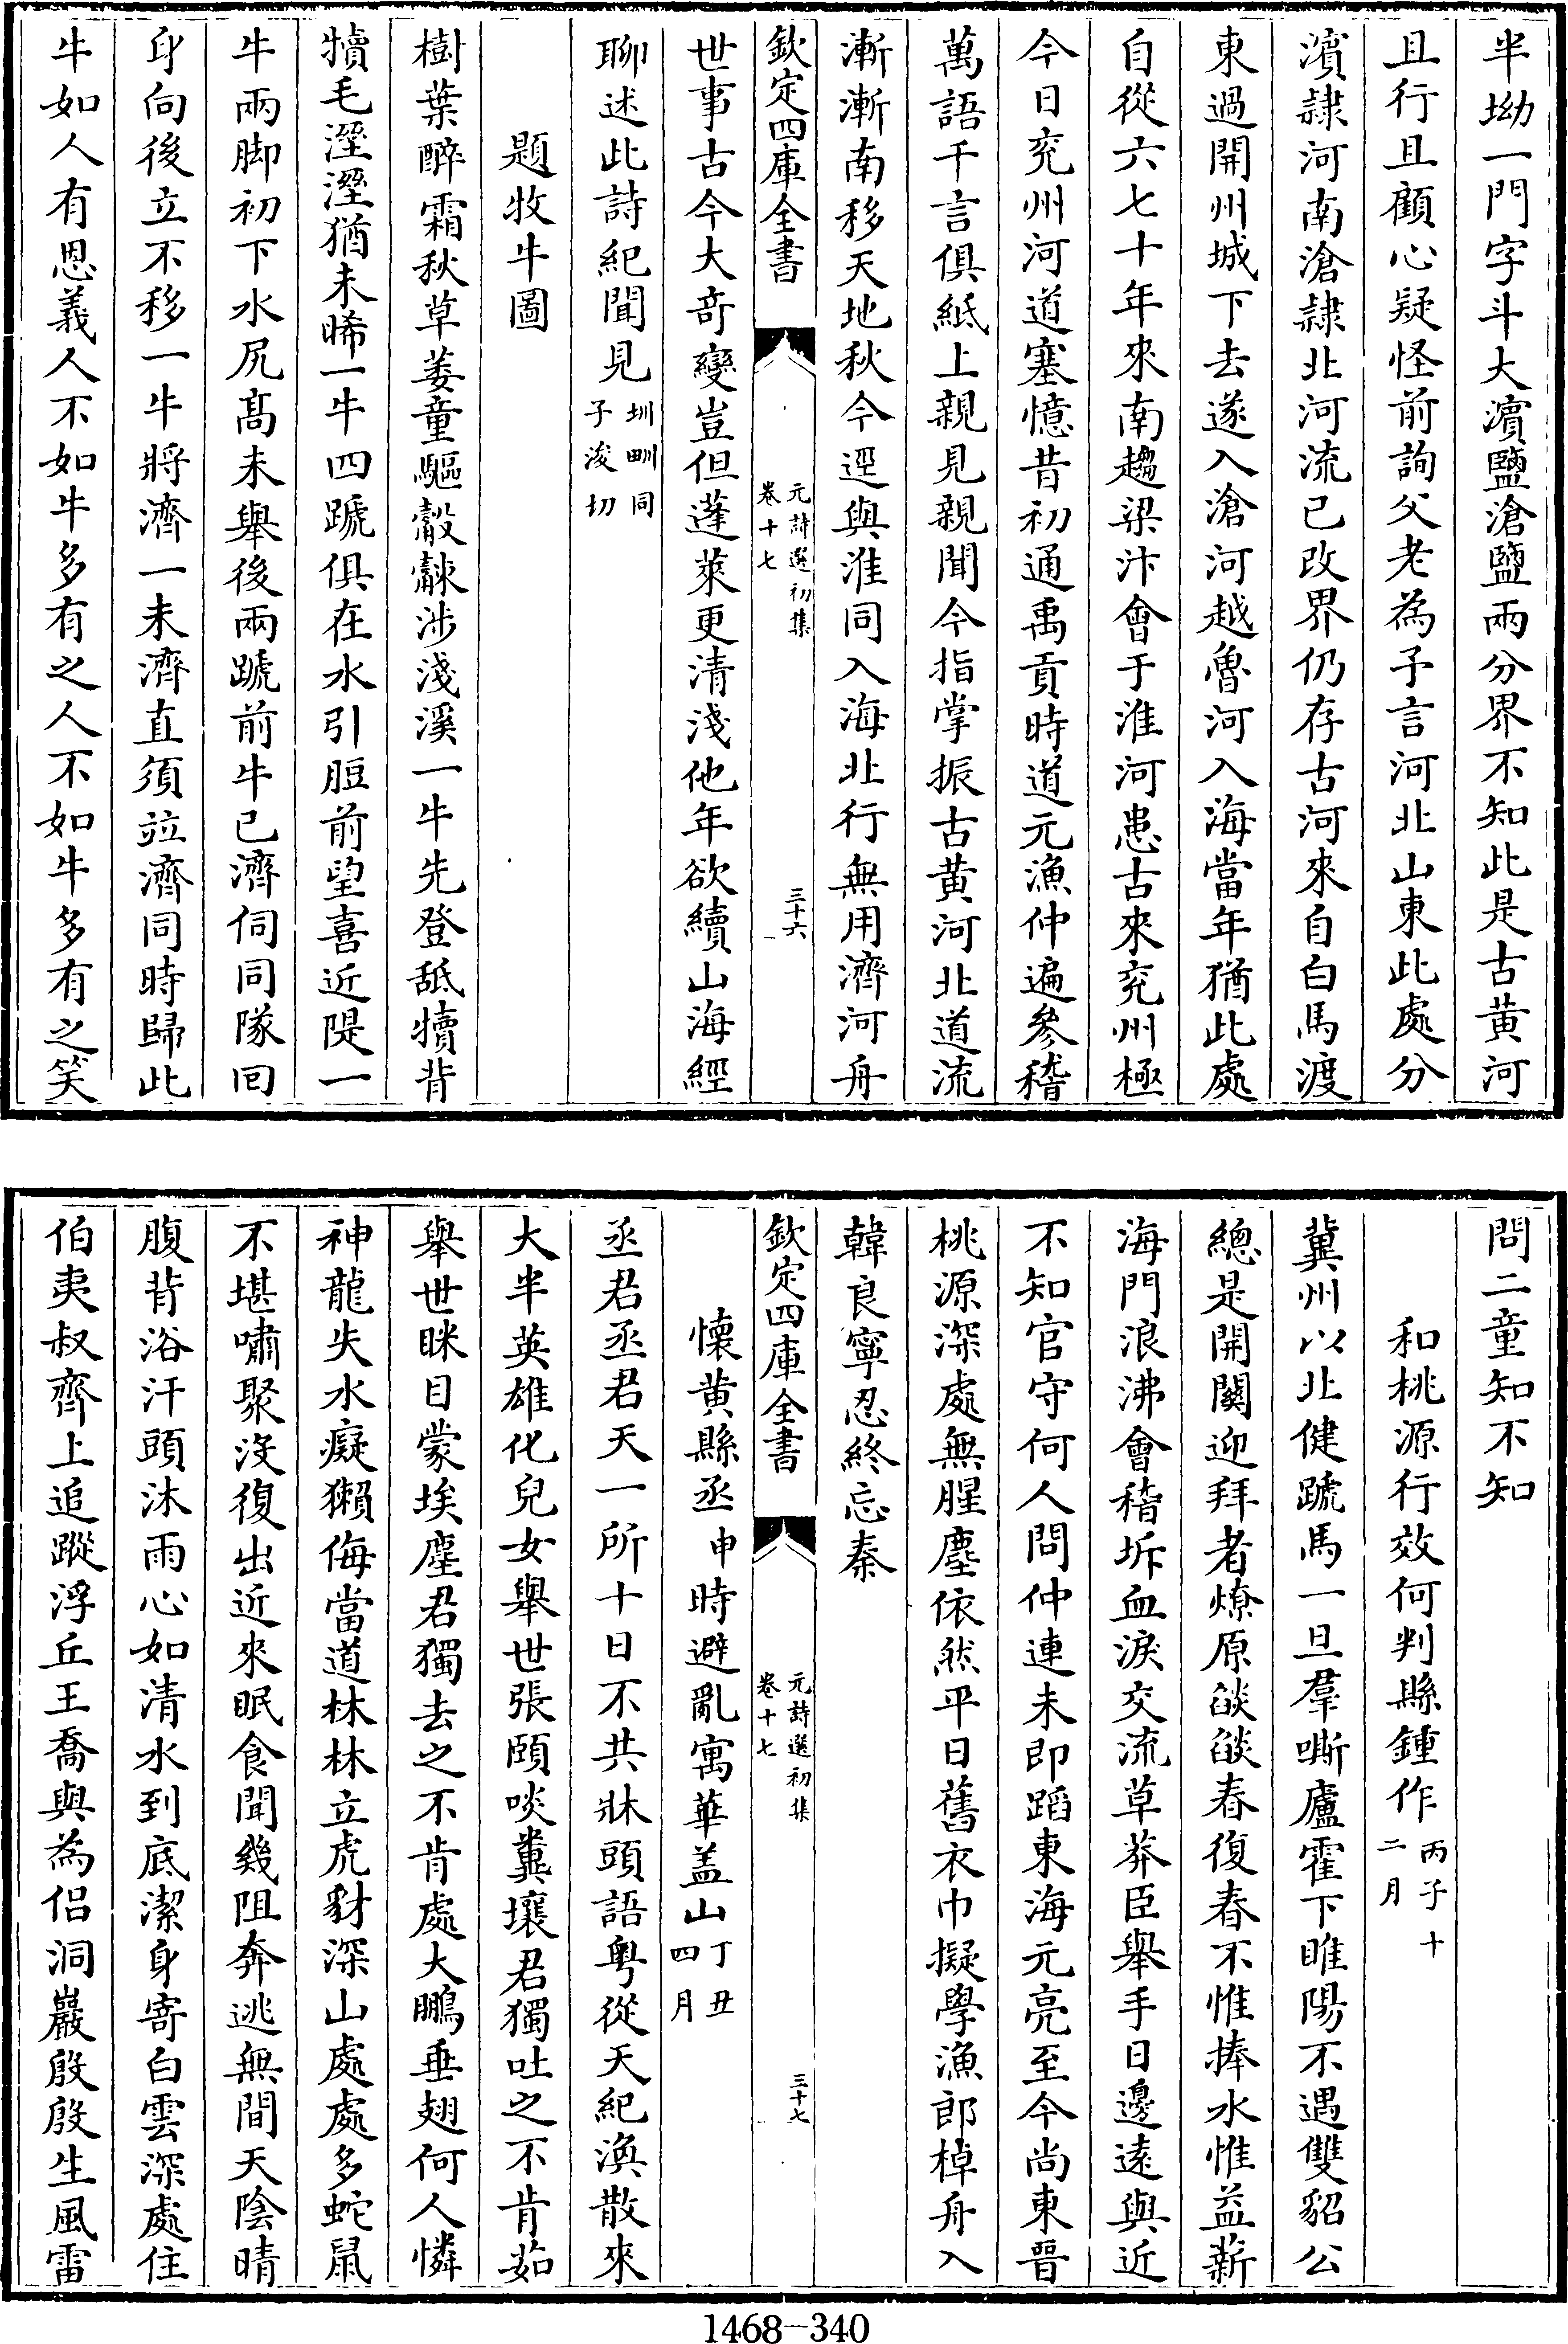 半坳一門字斗大濵鹽滄鹽兩分界不知此是古黄河
且行且顧心疑怪前詢父老為予言河北山東此處分
濵隷河南滄隷北河流已改界仍存古河來自白馬渡
東過開州城下去遂入滄河越魯河入海當年猶此處
自從六七十年來南趨梁汴會于淮河患古來兖州極
今日兖州河道塞憶昔初通禹貢時道元漁仲遍參稽
萬語千言俱紙上親見親聞今指掌振古黄河北道流
漸漸南移天地秋今逕與淮同入海北行無用濟河舟
欽定四庫全書
元詩選初集
卷十七
三十六
世事古今大竒變豈但蓬萊更清淺他年欲續山海經
聊述此詩紀聞見
圳甽同
子浚切
題牧牛圖
樹葉醉霜秋草萎童驅觳觫涉淺溪一牛先登舐犢背
犢毛溼溼猶未晞一牛四蹏俱在水引脰前望喜近隄一
牛兩脚初下水尻髙未舉後兩蹏前牛已濟伺同隊回
身向後立不移一牛將濟一未濟直須竝濟同時歸此
牛如人有恩義人不如牛多有之人不如牛多有之笑
問二童知不知
和桃源行效何判縣鍾作
丙子十
二月
冀州以北健蹏馬一旦羣嘶廬霍下睢陽不遇雙貂公
總是開闗迎拜者燎原燄燄春復春不惟捧水惟益薪
海門浪沸會稽坼血淚交流草莽臣舉手日邊逺與近
不知官守何人問仲連未即蹈東海元亮至今尚東晋
桃源深處無腥塵依然平日舊衣巾擬學漁郎棹舟入
韓良寧忍終忘秦
欽定四庫全書
元詩選初集
卷十七
三十七
懐黄縣丞申時避亂寓華盖山
丁丑
四月
丞君丞君天一所十日不共牀頭語粤從天紀渙散來
大半英雄化兒女舉世張頤啖糞壤君獨吐之不肯茹
舉世眯目蒙埃塵君獨去之不肯處大鵬垂翅何人憐
神龍失水癡獺侮當道林林立虎豺深山處處多蛇鼠
不堪嘯聚沒復出近來眠食聞幾阻奔逃無間天陰晴
腹背浴汗頭沐雨心如清水到底潔身寄白雲深處住
伯夷叔齊上追蹤浮丘王喬與為侣洞巖殷殷生風雷
1468-340